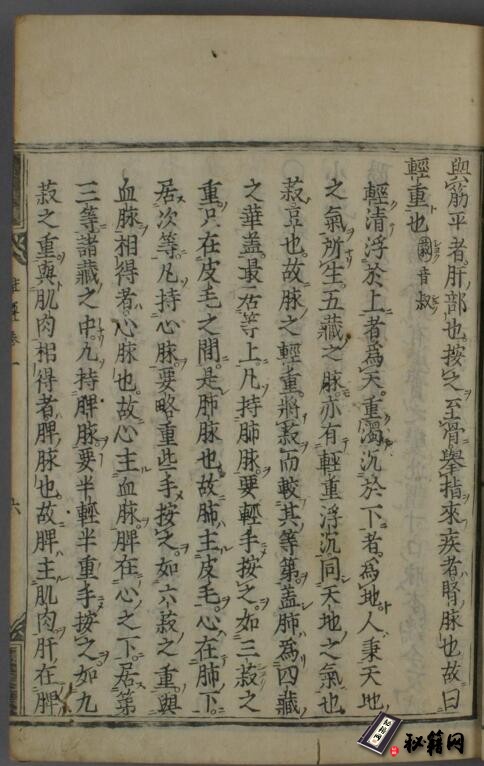 與筋平者肝部也按之至骨舉指來疾者腎脉也故曰
輕重也 菽音叔
輕清浮於上者為天重濁沉於下者為地人秉天地
之氣所生五藏之脉亦有輕重浮沉同天地之氣也
菽荳也故脉之輕重將菽而較其等第盖肺為四藏
之華盖最居等上凡持肺脉要輕手按之如三菽之
重只在皮毛之間是肺脉也故肺主皮毛心在肺下
居次等凡持心脉要略重些手按之如六菽之重與
血脉相得者心脉也故心主血脉脾在心之下居第
三等諸藏之中凡持脾脉要半輕半重手按之如九
菽之重與肌肉相得者脾脉也故脾主肌肉肝在脾
卷一
六
秘籍网